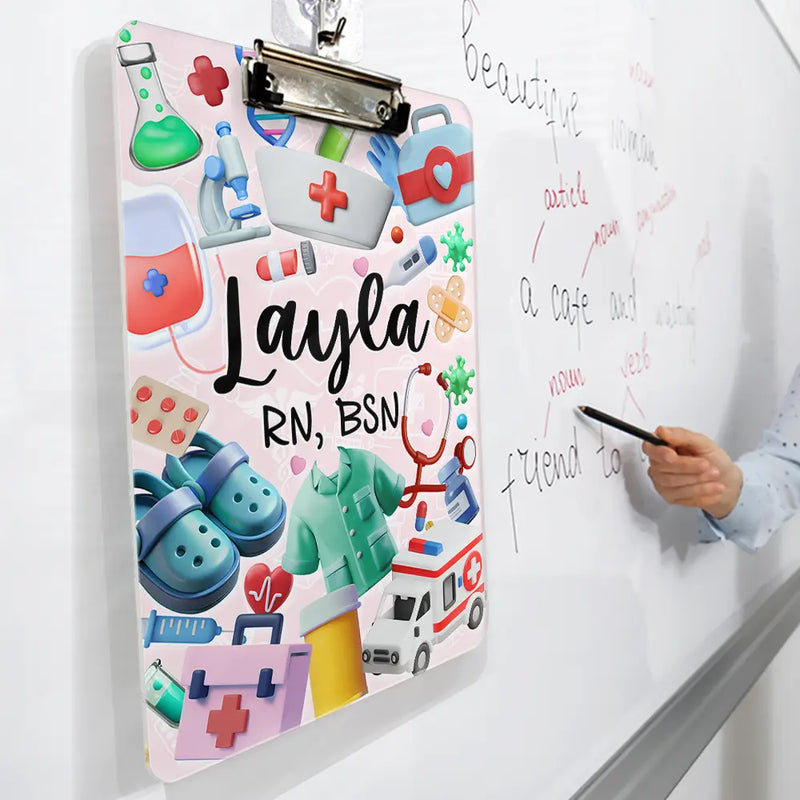 Layla
RN, BSN
beautiful
noun
woman
article
noun
conjunction
a cafe and waiting
noun
verb
friend to